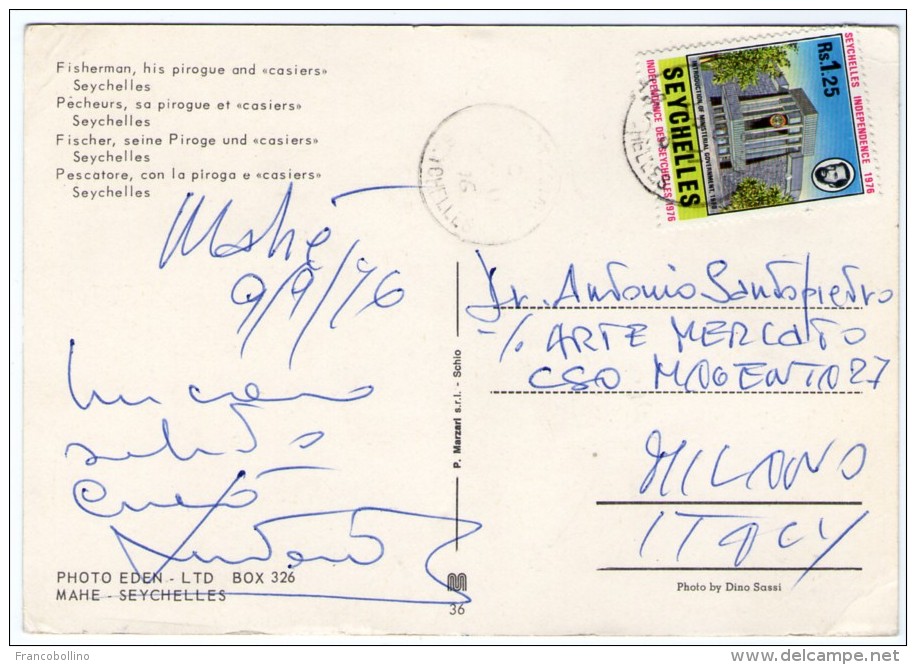 Fisherman, his pirogue and «casiers»
Seychelles
Pècheurs, sa pirogue et «casiers»
Seychelles
Fischer, seine Piroge und «casiers»
Seychelles
Pescatore, con la piroga e «casiers»
Seychelles
SEYCHELLES INDEPENDENCE 1976
Rs.1.25
INTRODUCTION OF MINISTERIAL GOVERNMENT
SEYCHELLES
INDEPENDANCE DES SEYCHELLES 1976
Mahé
9/9/76
Dr. Antonio Santopietro
% ARTE MERCATO
CSO MAGENTA 27
MILANO
ITALY
un caro
saluto
P. Marzari s.r.l. - Schio
PHOTO EDEN - LTD BOX 326
MAHE - SEYCHELLES
36
Photo by Dino Sassi
Francobollino
delcampe.net